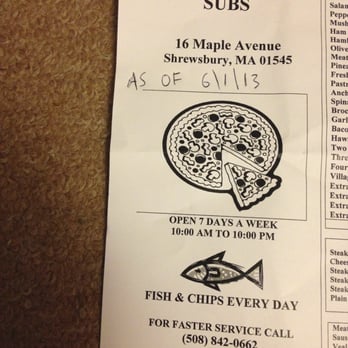 SUBS
16 Maple Avenue
Shrewsbury, MA 01545
AS OF 6/1/13
OPEN 7 DAYS A WEEK
10:00 AM TO 10:00 PM
FISH & CHIPS EVERY DAY
FOR FASTER SERVICE CALL
(508) 842-0662
Salam
Peppe
Mush
Ham
Hamb
Olive
Meat
Pinea
Fresh
Pastr
Anch
Spin
Broc
Garl
Baco
Haw
Two
Three
Four
Villa
Extra
Extra
Extra
Extra
Steak
Chees
Steak
Steak
Steak
Plain
Meat
Saus